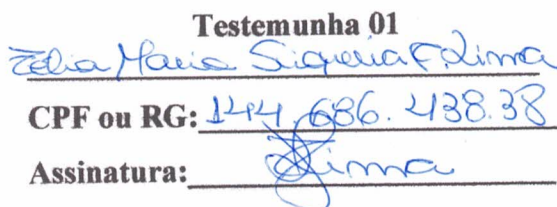 Testemunha 01
Zélia Maria Siqueira F. Lima
CPF ou RG: 144.686.438.38
Assinatura: Lima